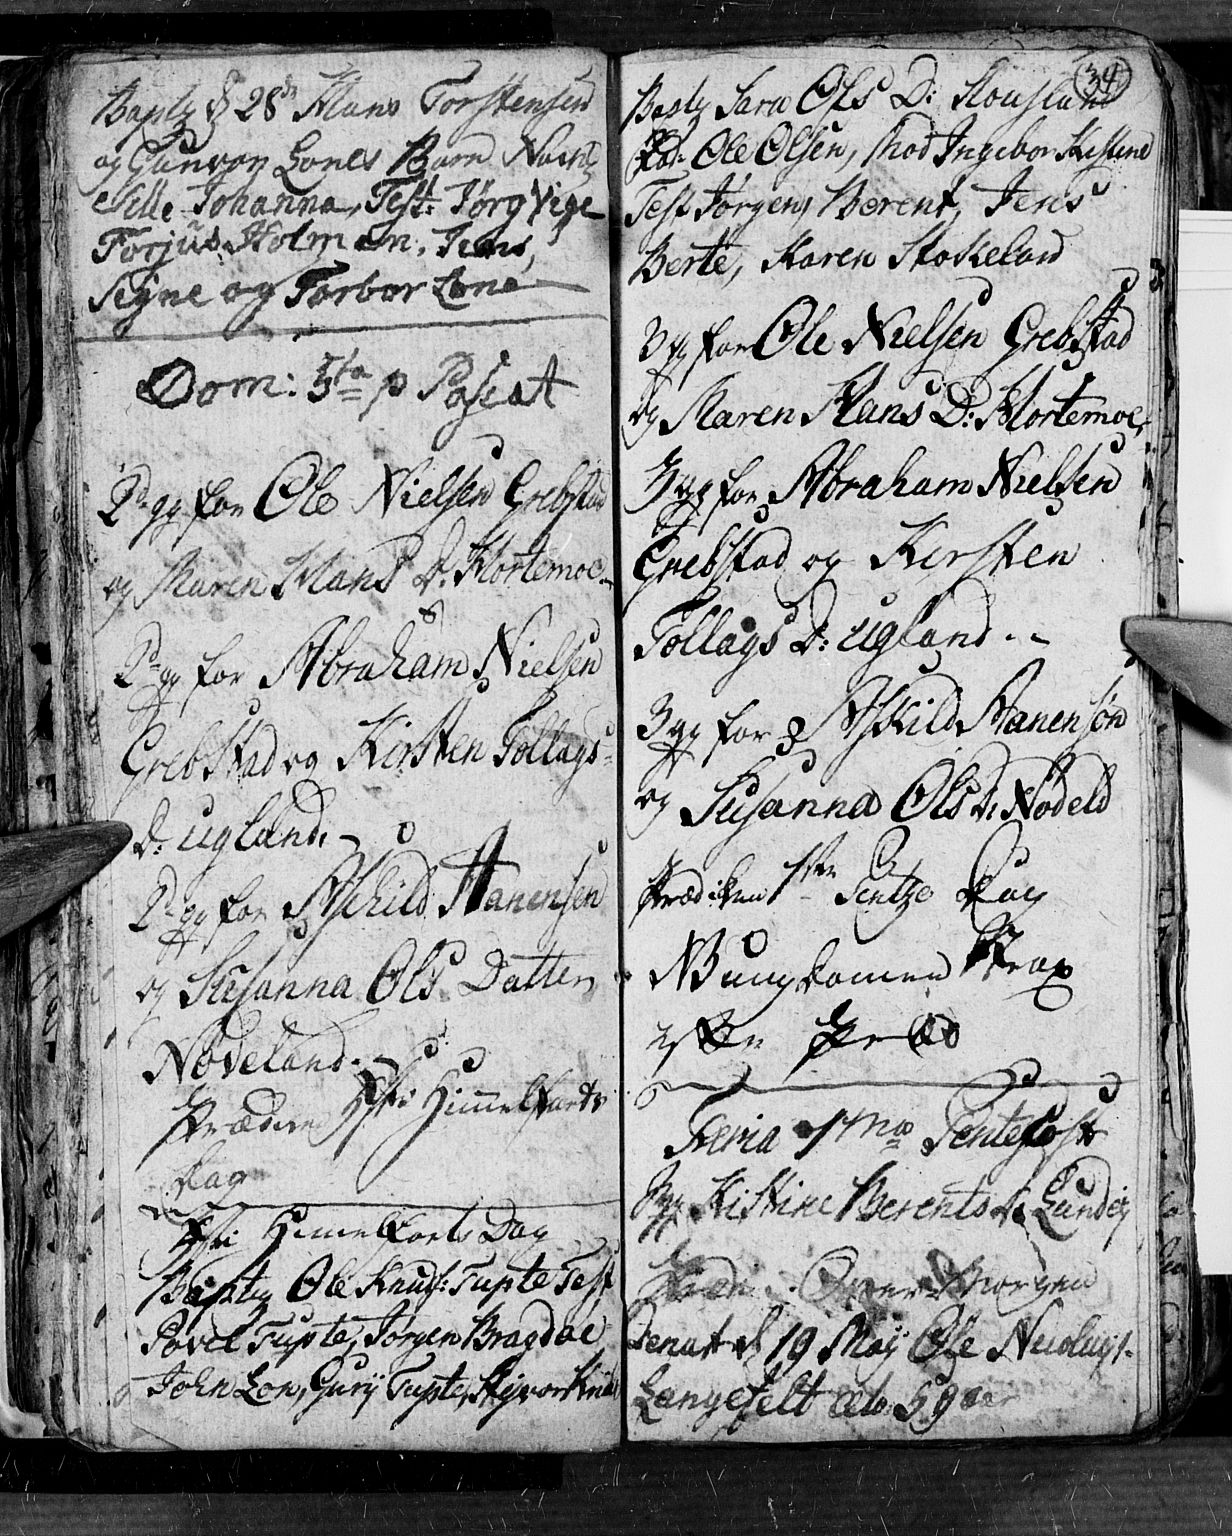 Baptz d 28de Hans Torstensen
og Gunvor Lones Barn Nom
Sille Johanna, Test: Jørg Vige
Torjus Holmen, Jens,
Signe og Torbor Lone
Dom: 5ta p Pascat
2d gg for Ole Nielsen Grebstad
og Maren Hans D: Mortemoe
2d gg for Abraham Nielsen
Grebstad og Kirsten Tollags
D: ugland.
2d gg for Aschild Hanensen
og Susanna Ols Datter
Nødeland.
Præd Xsti Himmelfarts
Dag
Xsti Himelfarts Dag
Baptz Ole Knuds: Tupte Test
Povel Tupte, Jørgen Bragdae
John Lon, Gurij Tupte,
34
Baptz Sara Ols D: Stousland
Ole Olsen, Mod Ingebor Kistine
Test Jørgen, Berent, Jens
Berte, Karen Stokeland
3 gg for Ole Nielsen Grebstad
og Maren Hans D: Mortemoe,
3 gg for Abraham Nielsen
Grebstad og Kirsten
Tollags D: ugland
3 gg for Askild Hanensøn
og Susanna Ols D: Nødeld
Prædiken 1ste Pentze Dag
Bungdomen Strax
Feria 1ma Pentecost
Kistine Berents D: Lunde
Over Morgen
Denat d 19 Maij Ole Nicolays
Langefelt æt. 59 aar